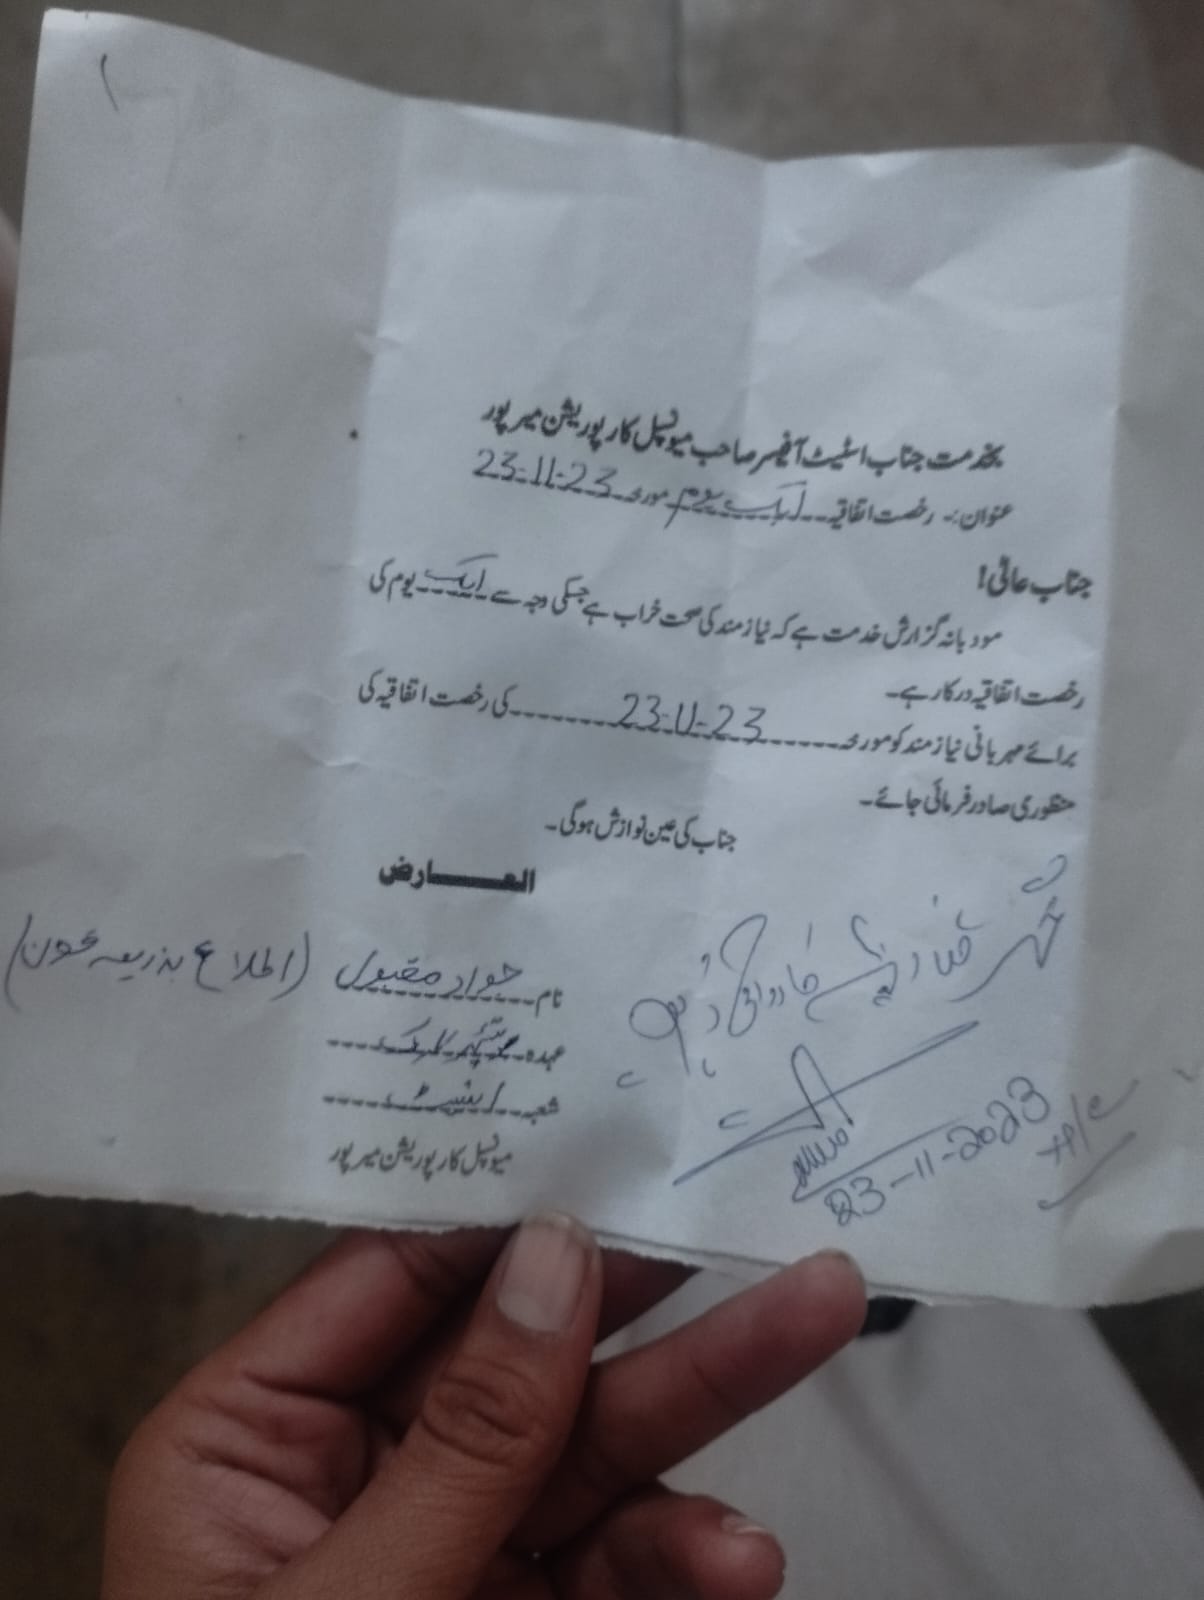 بخدمت جناب اسٹیٹ آفیسر صاحب میونسپل کارپوریشن میرپور
عنوان:۔ رخصت اتفاقیہ ایک یوم مورخہ 23-11-23
جناب عالی!
مودبانہ گزارش خدمت ہے کہ نیازمند کی صحت خراب ہے جسکی وجہ سے ایک یوم کی
رخصت اتفاقیہ درکار ہے۔
برائے مہربانی نیازمند کو مورخہ 23-11-23 کی رخصت اتفاقیہ کی
منظوری صادر فرمائی جائے۔
جناب کی عین نوازش ہوگی۔
العارض
نام جواد مقبول (اطلاع بذریعہ فون)
عہدہ کلرک
شعبہ اسٹیٹ
میونسپل کارپوریشن میرپور
23-11-2023